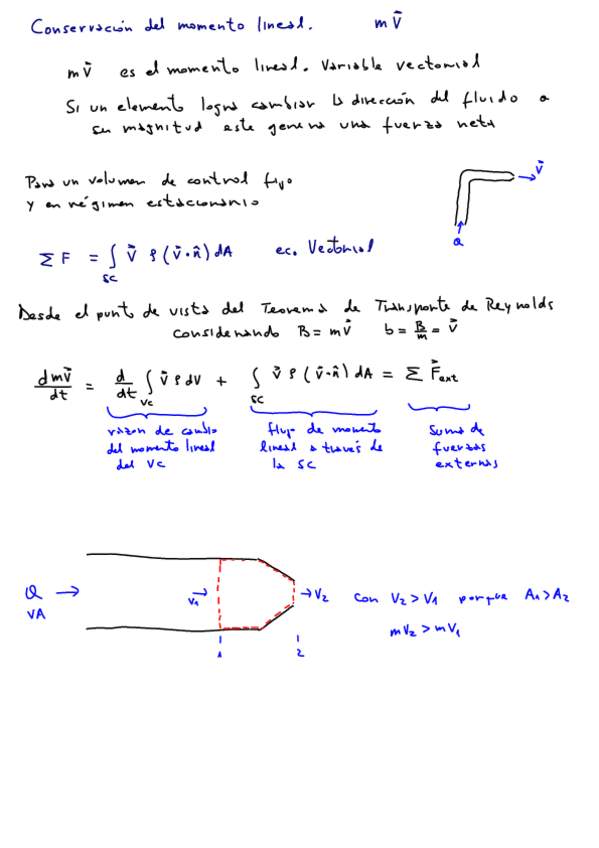 Conservación del momento lineal. m V⃗
m V⃗ es el momento lineal. Variable vectorial
Si un elemento logra cambiar la dirección del fluido o
su magnitud este genera una fuerza neta
Para un volumen de control fijo
y en régimen estacionario
V⃗
Q
Σ F = ∫ V⃗ ρ (V⃗·n̂) dA ec. Vectorial
SC
Desde el punto de vista del Teorema de Transporte de Reynolds
considerando B = m V⃗ b = B/m = V⃗
dmV⃗/dt = d/dt ∫ V⃗ ρ dV + ∫ V⃗ ρ (V⃗·n̂) dA = Σ F⃗ext
VC SC
razón de cambio flujo de momento Suma de
del momento lineal lineal a través de fuerzas
del VC la SC externas
Q → V₁ → → V₂ con V₂ > V₁ porque A₁ > A₂
VA
mV₂ > mV₁
1 2